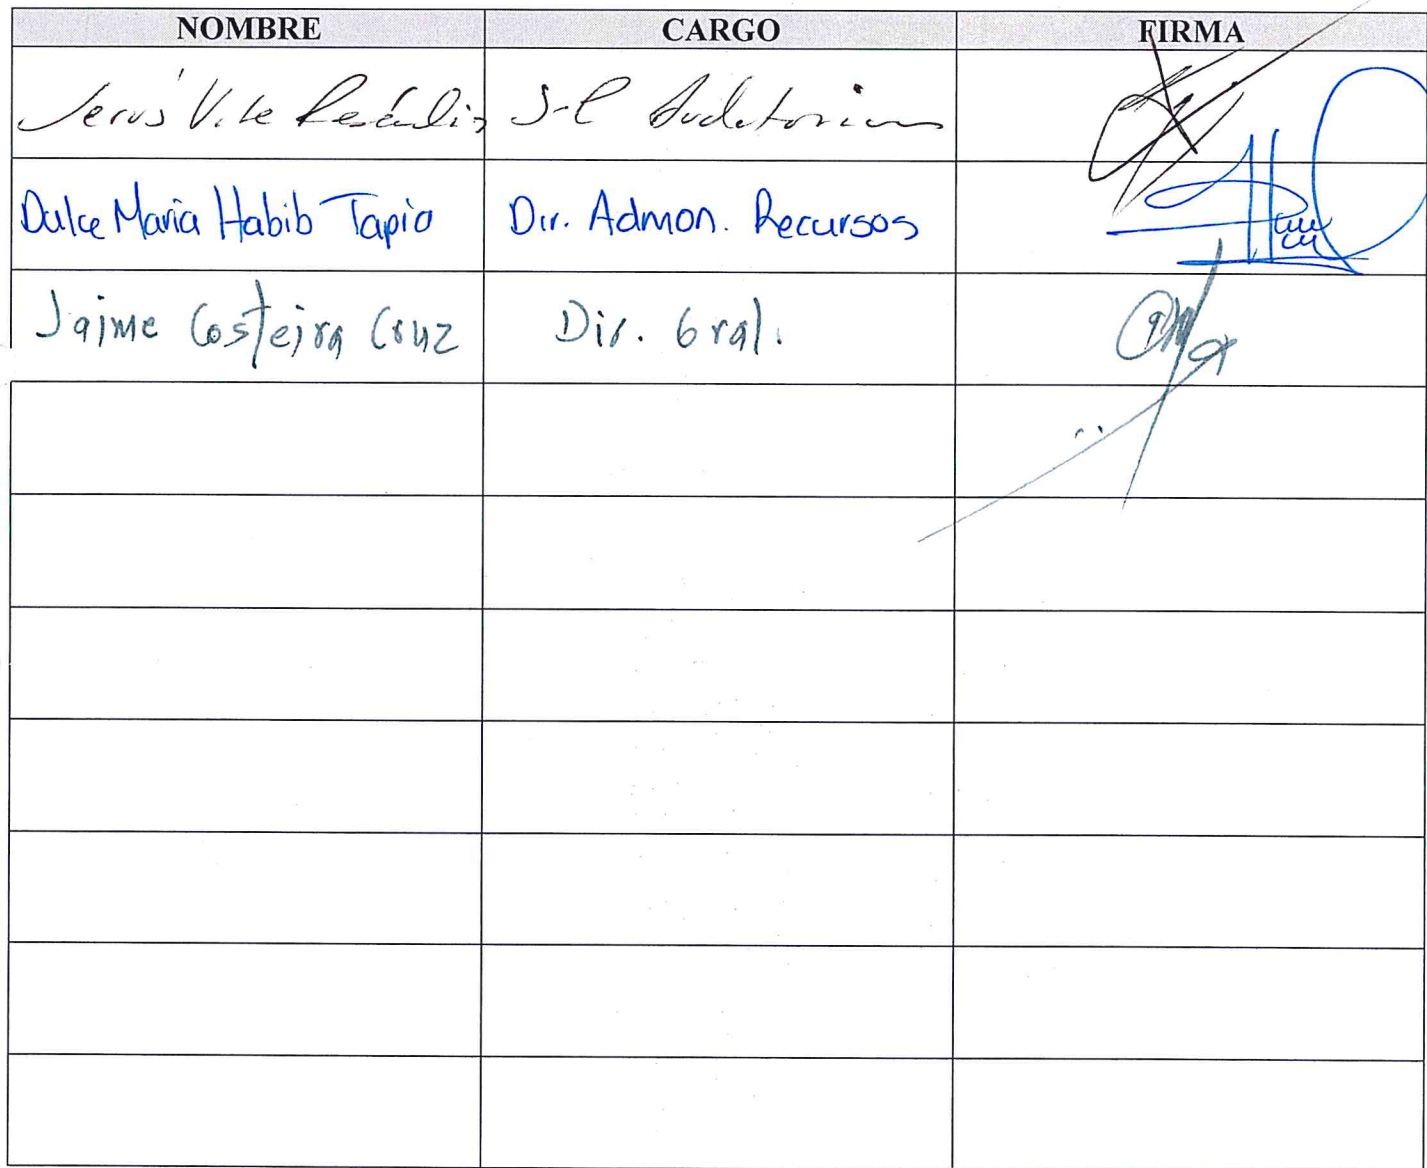 NOMBRE CARGO FIRMA
Jesús Vite
Dulce Maria Habib Tapia Dir. Admon. Recursos
Jaime Costeira Cruz Dir. Gral.